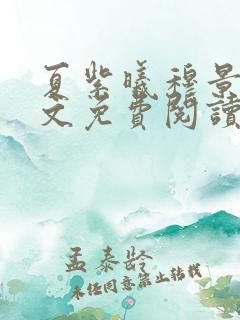 夏紫曦穆景
文免費閱讀
孟泰龄
未经同意禁止转载